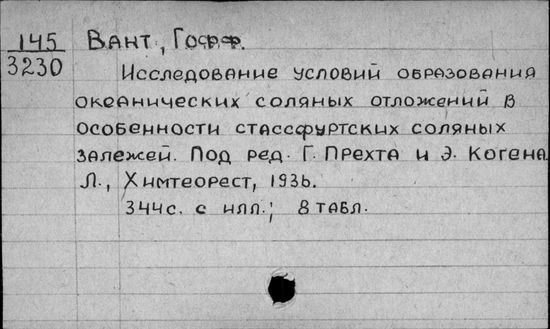 145 Вант, Гофф.
3230
Исследование условий образования
океанических соляных отложений в
особенности стассфуртских соляных
залежей. Под ред. Г. Прехта и Э. Когена
Л., Химтеорест, 1936.
344с. с илл.; 8 табл.